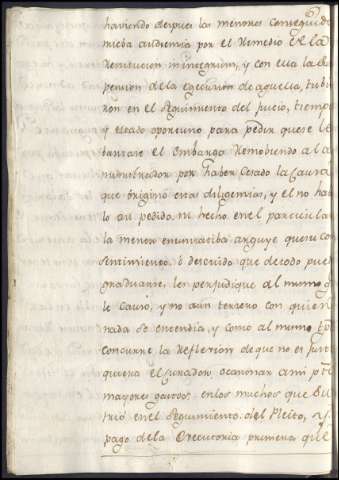 haviendo despues los menores conseguido
nueba audiencia por el Remedio de la
Restitucion in integrum, y con ella la su
pencion de la egecucion de aquella, tubie
ron en el seguimiento del juicio, tiempo
y estado oportuno para pedir que se le
bantase el Embargo Removiendo al ad
ministrador por haber Cesado la Causa
que originó esta diligencia, y el no ha
lo an pedido ni hecho en el particular
la menor enunciatiba arguye que su con
sentimiento ó descuido que de todo pue
graduarse, les perjudique al mismo q
le Causó, y no aun tercero con quien
nada se entendia, y como al mismo tpo
concurre la Reflesion de que no es justo
quiera el Curador ocasionar a mi pte
mayores gastos en los muchos que su
frió en el seguimiento del Pleito, y
pago de la Executoria primera que